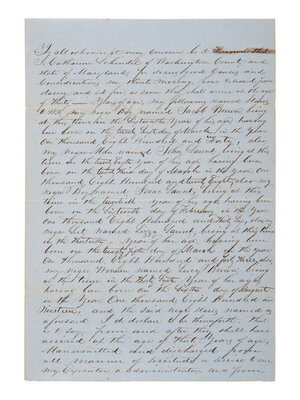 To all whom it may concern be it known that
I Catharine Schindle of Washington County and
State of Maryland for divers good Causes and
Considerations me thereto moving have released from
slavery and set free as soon as they shall arrive at the age
of Thirty Years of age, my following named slaves
to Wit my negro Boy named Jacob Brown being
at this time in the sixteenth Year of his age having
been born on the day of March in the Year
One thousand Eight Hundred and Forty, also
my negro Man named John Grant being at this
time in the twenty Eighth Year of his age having been
born on the third day of March in the Year One
thousand Eight Hundred and twenty Eight also my
negro Boy named Grant, being at this
time in the seventeenth Year of his age having been
born on the Sixteenth day of February in the Year
One thousand Eight Hundred and thirty also my
negro Girl named Suzy Grant, being at this time
in the thirteenth Year of her age having been
born on the day of March in the Year
One Thousand Eight Hundred and forty Three, also
my negro Woman named Lucy Brown being
at this time in the Thirty Year of her age
having been born on the Tenth day of August
in the Year One thousand Eight Hundred and
Nineteen, and the said negro slaves named as
aforesaid I do declare to be henceforth that
is to say from and after they shall have
arrived at the age of Thirty Years of age
Manumitted and discharged from
all manner of servitude or service to me
my Executor or Administrator and from